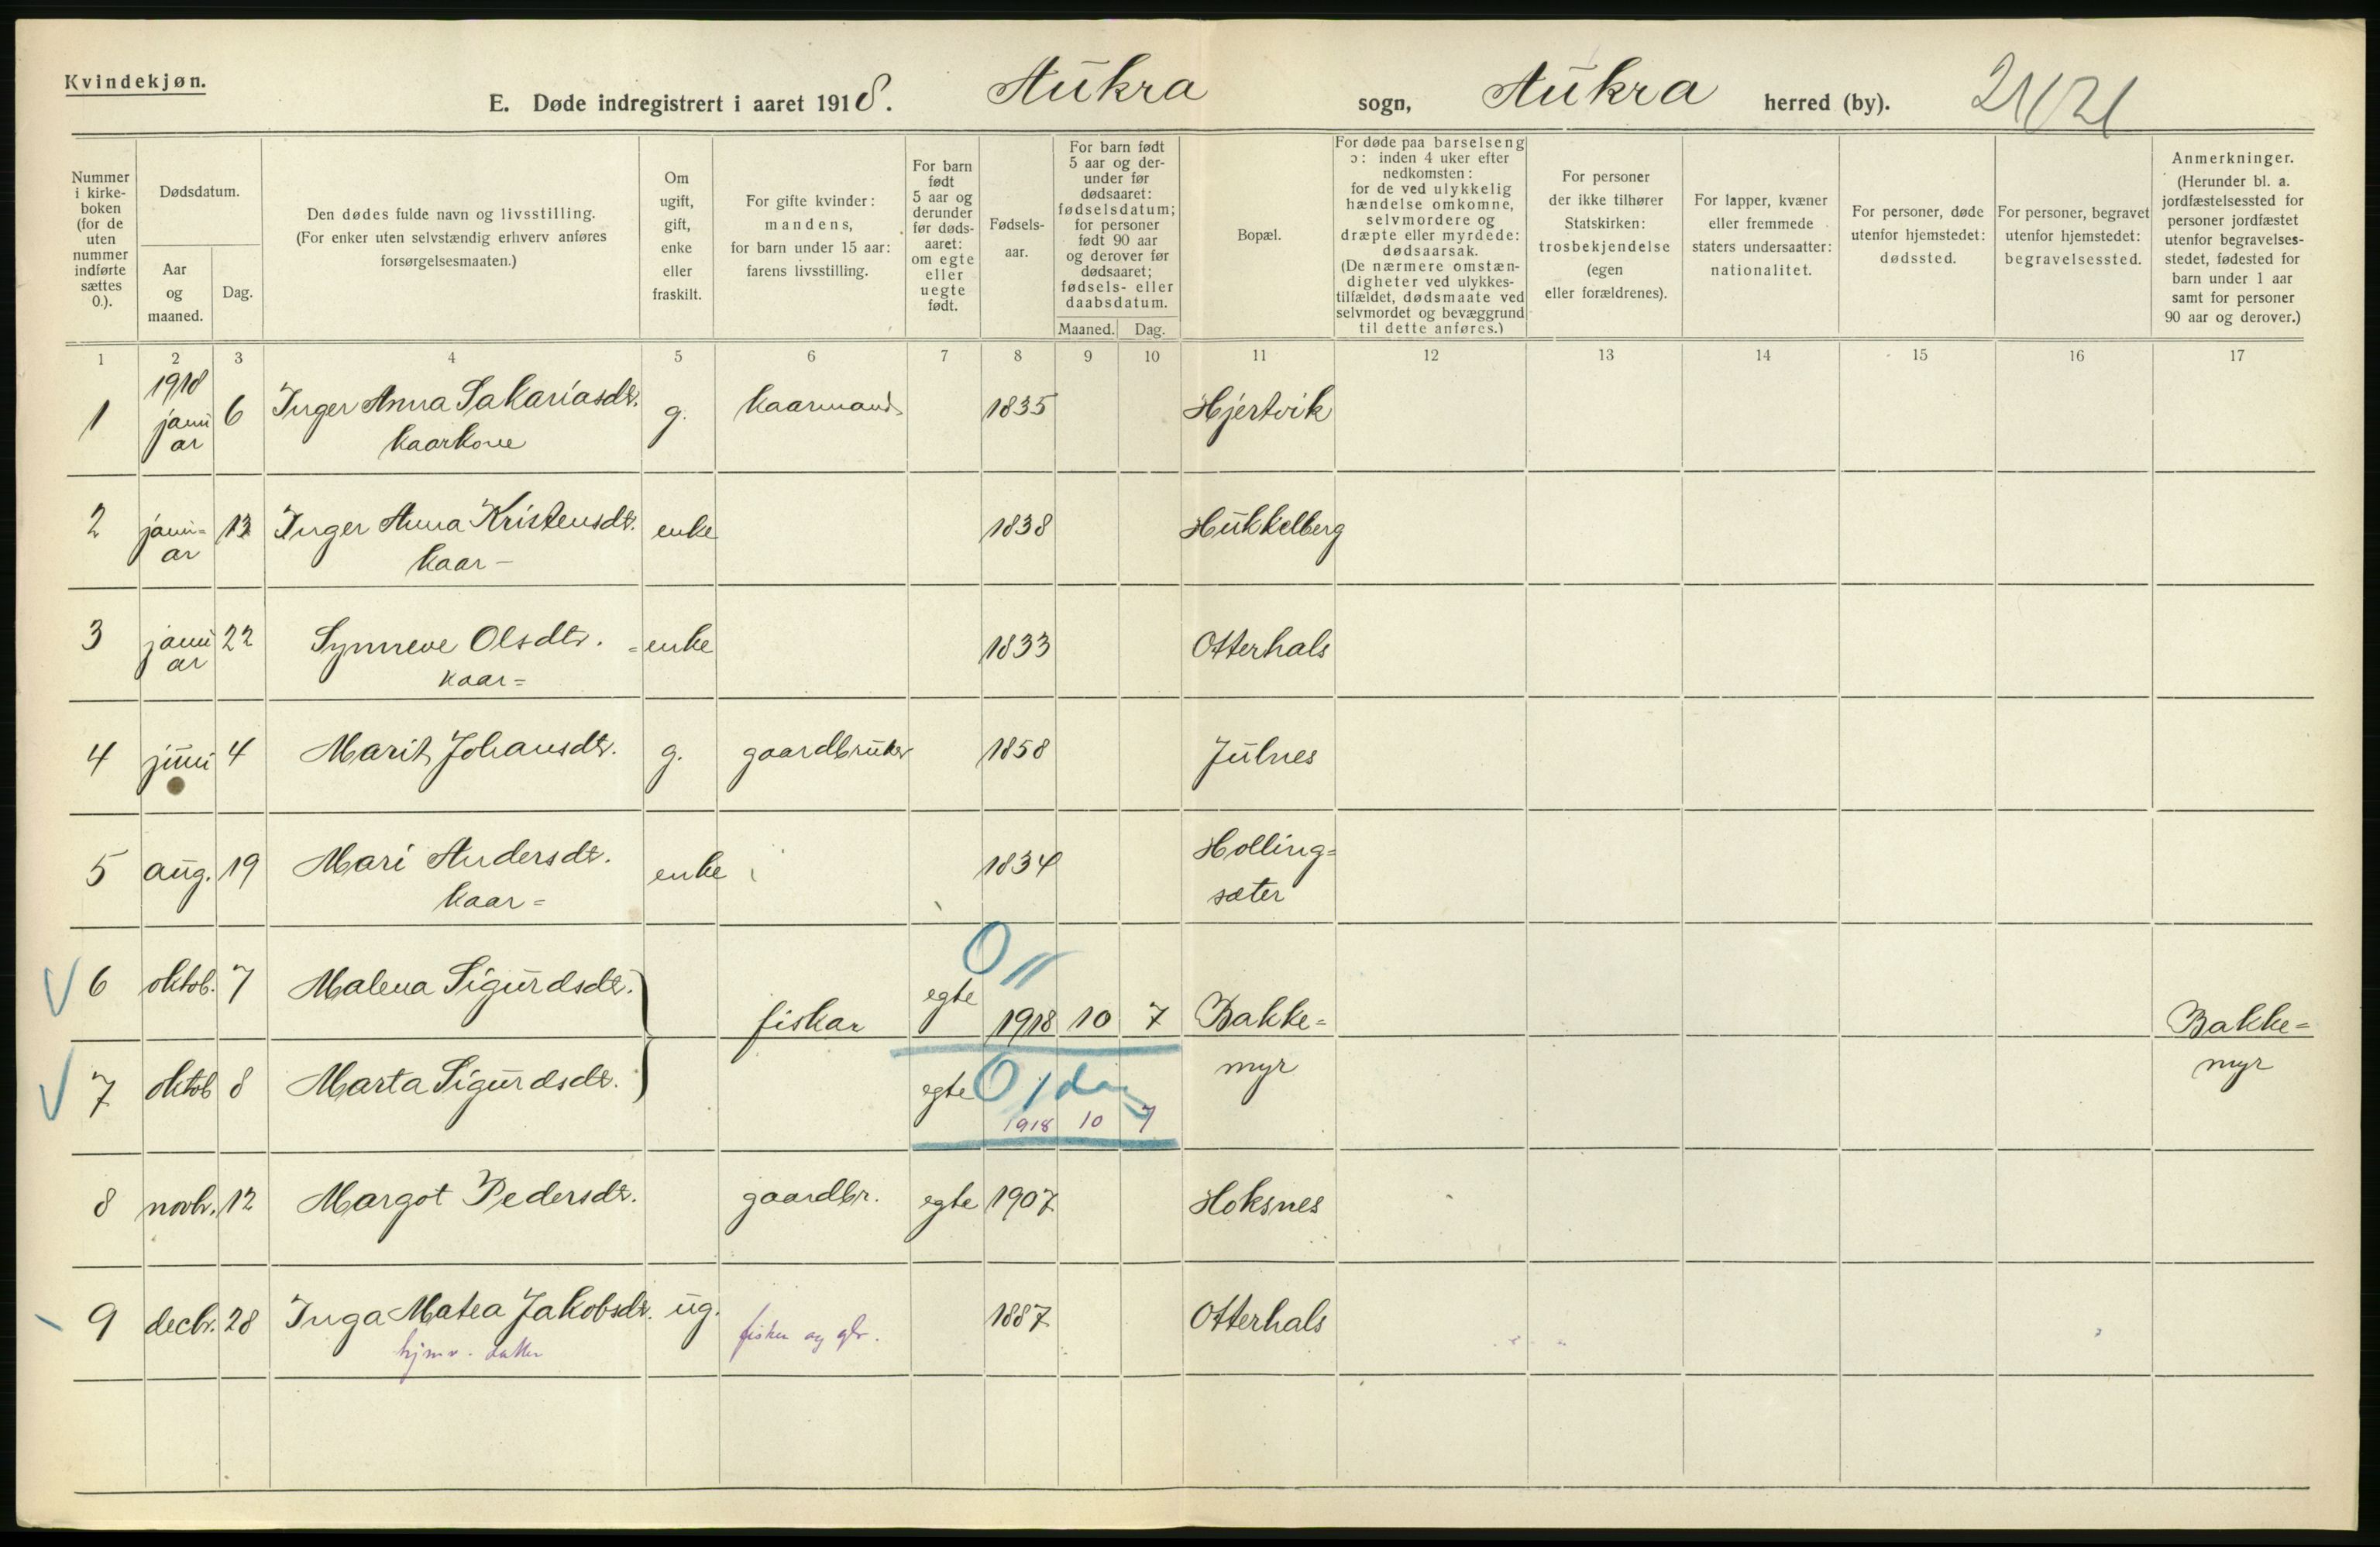 Kvindekjøn.
E. Døde indregistrert i aaret 1918. Aukra sogn, Aukra herred (by). 21/21
Nummer i kirke- boken (for de uten nummer indførte sættes 0.).
Dødsdatum.
Aar og maaned.
Dag.
Den dødes fulde navn og livsstilling. (For enker uten selvstændig erhverv anføres forsørgelsesmaaten.)
Om ugift, gift, enke eller fraskilt.
For gifte kvinder: mandens, for barn under 15 aar: farens livsstilling.
For barn født 5 aar og derunder før døds- aaret: om egte eller uegte født.
Fødsels- aar.
For barn født 5 aar og der- under før dødsaaret: fødselsdatum; for personer født 90 aar og derover før dødsaaret; fødsels- eller daabsdatum.
Maaned. Dag.
Bopæl.
For døde paa barselseng ɔ: inden 4 uker efter nedkomsten: for de ved ulykkelig hændelse omkomne, selvmordere og dræpte eller myrdede: dødsaarsak. (De nærmere omstæn- digheter ved ulykkes- tilfældet, dødsmaate ved selvmordet og bevæggrund til dette anføres.)
For personer der ikke tilhører Statskirken: trosbekjendelse (egen eller forældrenes).
For lapper, kvæner eller fremmede staters undersaatter: nationalitet.
For personer, døde utenfor hjemstedet: dødssted.
For personer, begravet utenfor hjemstedet: begravelsessted.
Anmerkninger. (Herunder bl. a. jordfæstelsessted for personer jordfæstet utenfor begravelses- stedet, fødested for barn under 1 aar samt for personer 90 aar og derover.)
1 2 3 4 5 6 7 8 9 10 11 12 13 14 15 16 17
1918
1 janu ar 6 Inger Anna Sakariasdt. kaarkone g. kaarmand 1835 Hjertvik
2 janu= ar 13 Inger Anna Kristensdt. kaar - enke 1838 Hukkelberg
3 janu ar 22 Synneve Olsdtr. kaar= enke 1833 Otterhals
4 juni 4 Marit Johansdt. g. gaardbruker 1858 Julnes
5 aug. 19 Mari Andersdt. kaar= enke 1834 Holling= sæter
6 oktob. 7 Malena Sigurdsdt. fiskar egte 0 1918 10 7 Bakke= Bakke=
7 oktob 8 Marta Sigurdsdt. egte 0 1 dag 1918 10 7 myr myr
8 novbr. 12 Margot Pedersdt. gaardbr. egte 1907 Hoksnes
9 decbr. 28 Inga Matea Jakobsdt. ug. 1887 Otterhals
hjmv. datter fisker og gbr.